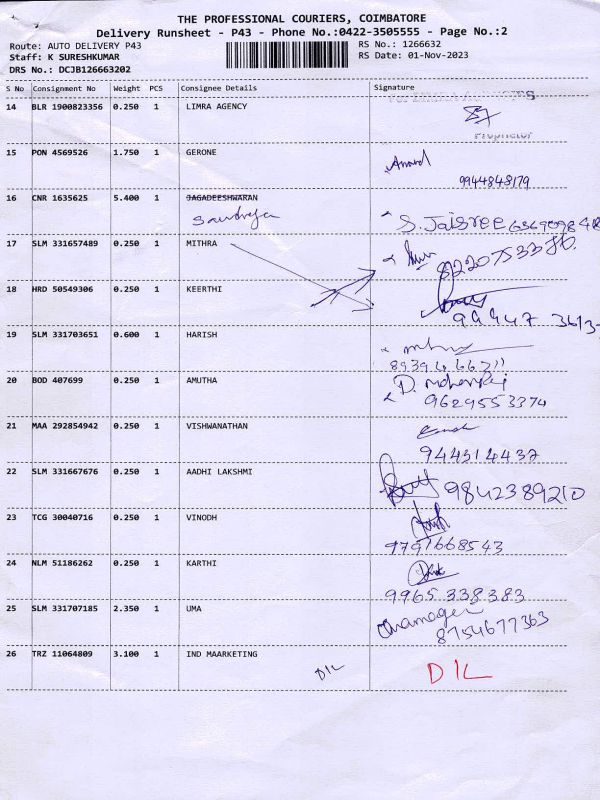 THE PROFESSIONAL COURIERS, COIMBATORE
Delivery Runsheet - P43 - Phone No.:0422-3505555 - Page No.:2
Route: AUTO DELIVERY P43 RS No.: 1266632
Staff: K SURESHKUMAR RS Date: 01-Nov-2023
DRS No.: DCJB126663202
S No Consignment No Weight PCS Consignee Details Signature
14 BLR 1900823356 0.250 1 LIMRA AGENCY
Proprietor
15 PON 4569526 1.750 1 GERONE Anand
9944848179
16 CNR 1635625 5.400 1 JAGADEESHWARAN
S. Jaisree
17 SLM 331657489 0.250 1 MITHRA
18 HRD 50549306 0.250 1 KEERTHI
99447 3613
19 SLM 331703651 0.600 1 HARISH
20 BOD 407699 0.250 1 AMUTHA
9629553374
21 MAA 292854942 0.250 1 VISHWANATHAN
944314437
22 SLM 331667676 0.250 1 AADHI LAKSHMI 9842389210
23 TCG 30040716 0.250 1 VINODH
9791668543
24 NLM 51186262 0.250 1 KARTHI
9965 338 383
25 SLM 331707185 2.350 1 UMA
8754677363
26 TRZ 11064809 3.100 1 IND MAARKETING
DIL DIL